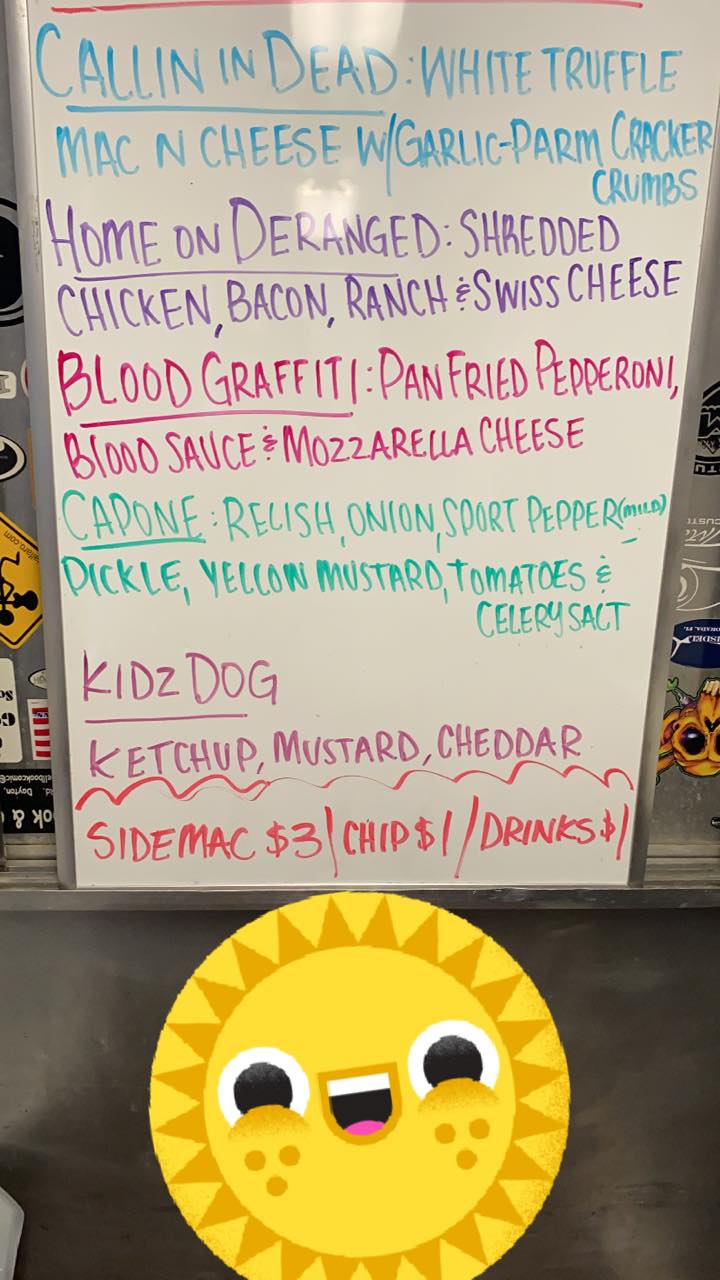 CALLIN IN DEAD: WHITE TRUFFLE
MAC N CHEESE W/GARLIC-PARM CRACKER
CRUMBS
HOME ON DERANGED: SHREDDED
CHICKEN, BACON, RANCH & SWISS CHEESE
BLOOD GRAFFITI: PAN FRIED PEPPERONI,
BLOOD SAUCE & MOZZARELLA CHEESE
CAPONE: RELISH, ONION, SPORT PEPPER (MILD)
PICKLE, YELLOW MUSTARD, TOMATOES &
CELERY SALT
KIDZ DOG
KETCHUP, MUSTARD, CHEDDAR
SIDE MAC $3 | CHIP $1 / DRINKS $1